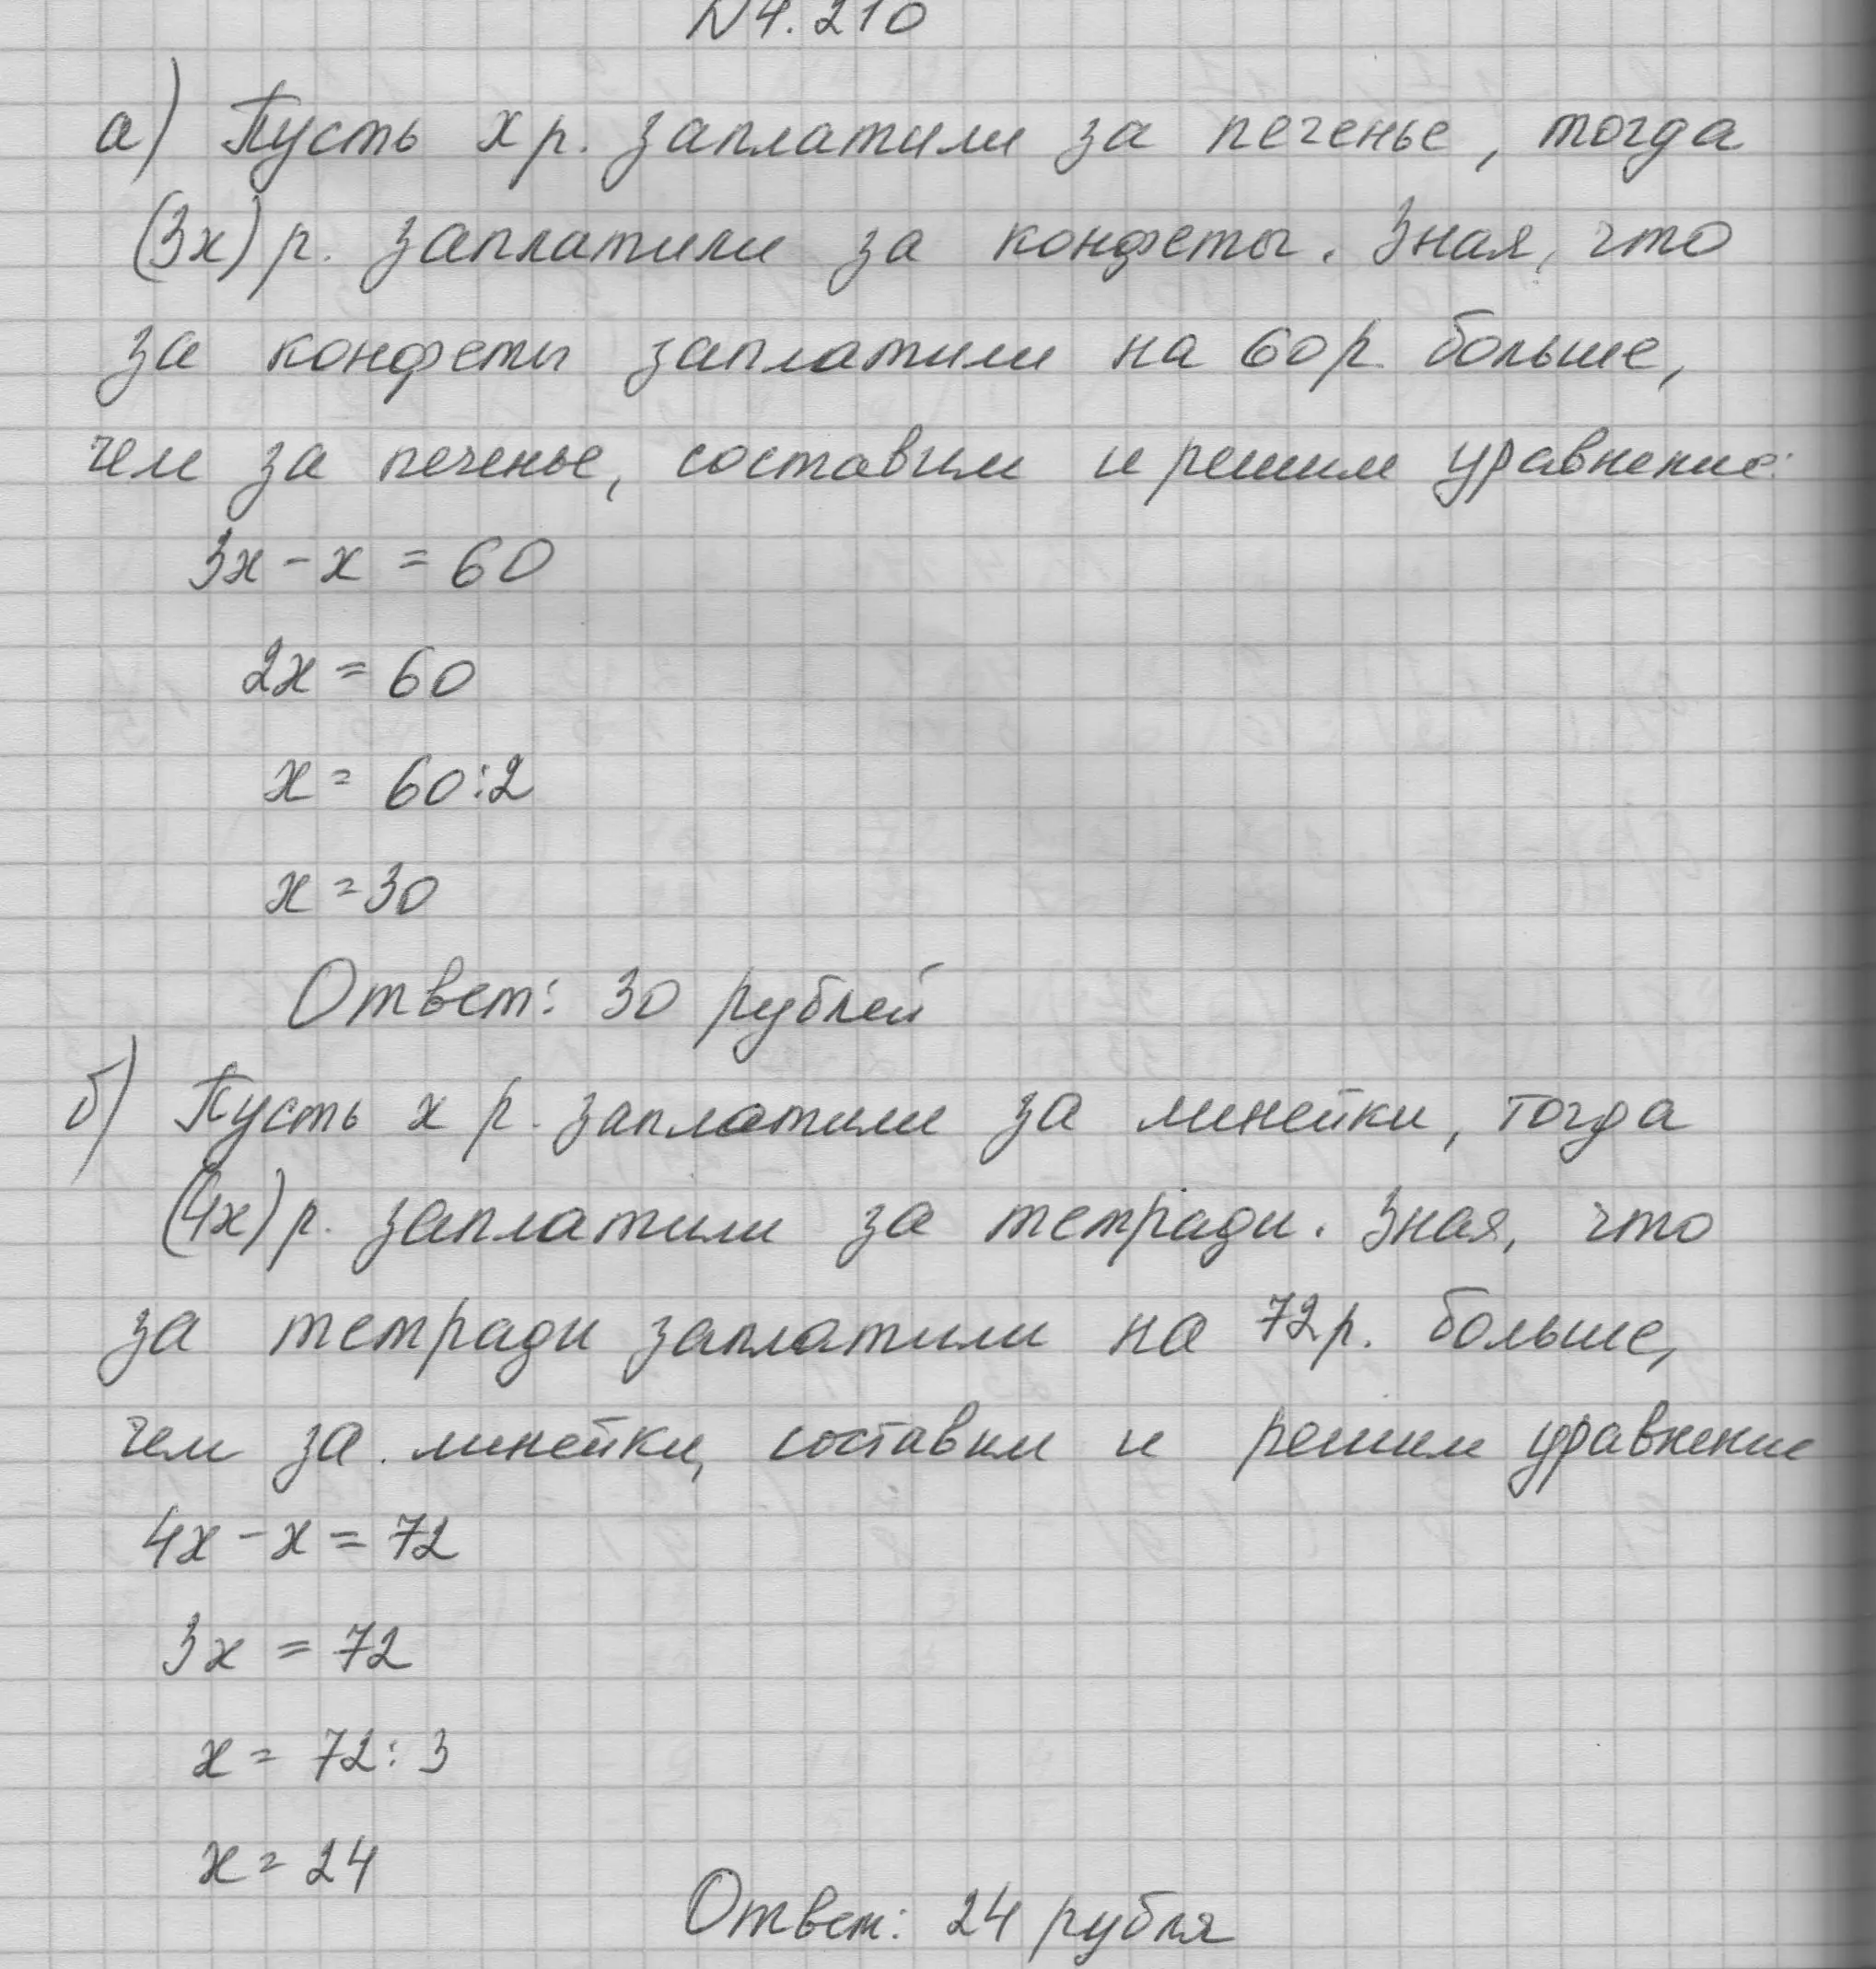 №4.210
а) Пусть х р. заплатили за печенье, тогда
(3х) р. заплатили за конфеты. Зная, что
за конфеты заплатили на 60 р. больше,
чем за печенье, составим и решим уравнение:
3х - х = 60
2х = 60
х = 60:2
х = 30
Ответ: 30 рублей
б) Пусть х р. заплатили за линейки, тогда
(4х) р. заплатили за тетради. Зная, что
за тетради заплатили на 72 р. больше,
чем за линейки, составим и решим уравнение
4х - х = 72
3х = 72
х = 72:3
х = 24
Ответ: 24 рубля